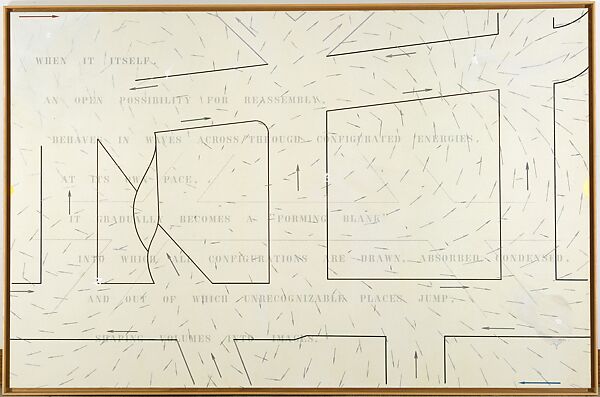 WHEN IT ITSELF.
AN OPEN POSSIBILITY FOR REASSEMBLY,
BEHAVES IN WAVES ACROSS/THROUGH CONFIGURATED ENERGIES.
AT ITS OWN PACE.
IT GRADUALLY BECOMES A "FORMING BLANK"
INTO WHICH ALL CONFIGURATIONS ARE DRAWN, ABSORBED, CONDENSED.
AND OUT OF WHICH UNRECOGNIZABLE PLACES JUMP.
SHAPING VOLUMES INTO IMAGES.